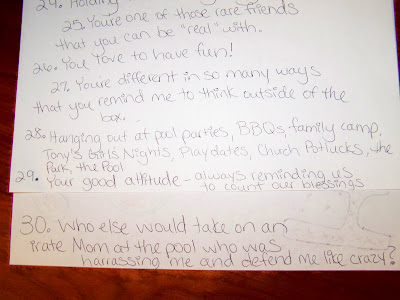 24. Holding
25. You're one of those rare friends
that you can be "real" with.
26. You love to have fun!
27. You're different in so many ways
that you remind me to think outside of the
box.
28. Hanging out at pool parties, BBQs, family camp,
Tony's Girl's Nights, Playdates, Church Potlucks, the
Park, the Pool
29. Your good attitude - always reminding us
to count our blessings
30. Who else would take on an
irate Mom at the pool who was
harrassing me and defend me like crazy?